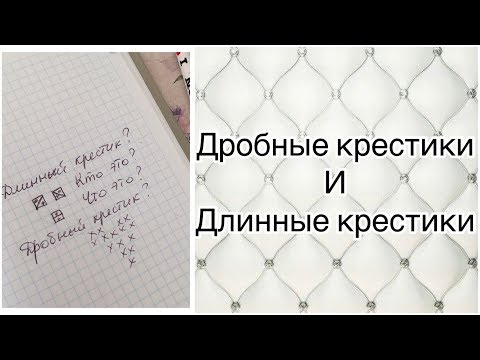 Длинный крестик?
Кто это?
Что это?
Дробный крестик?
Дробные крестики
И
Длинные крестики